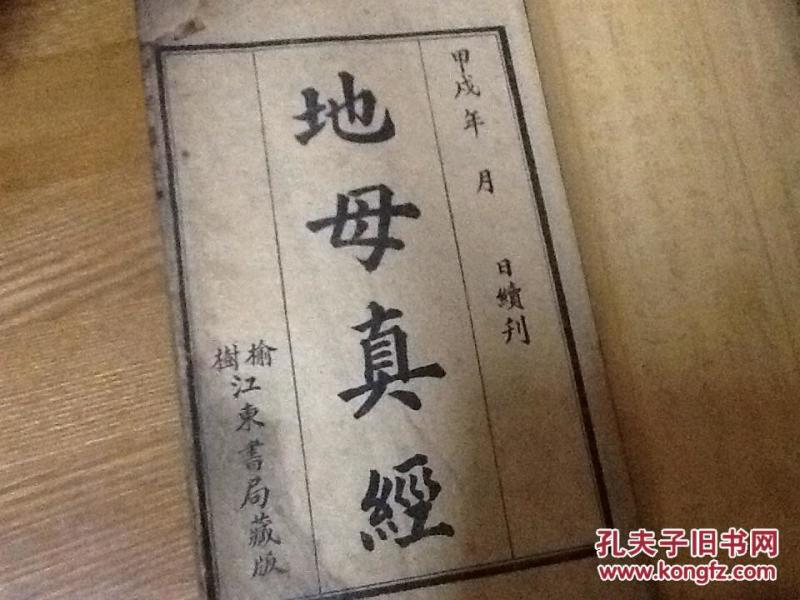 甲戌年 月 日續刊
地母真經
榆樹江東書局藏版
孔夫子旧书网
www.kongfz.com